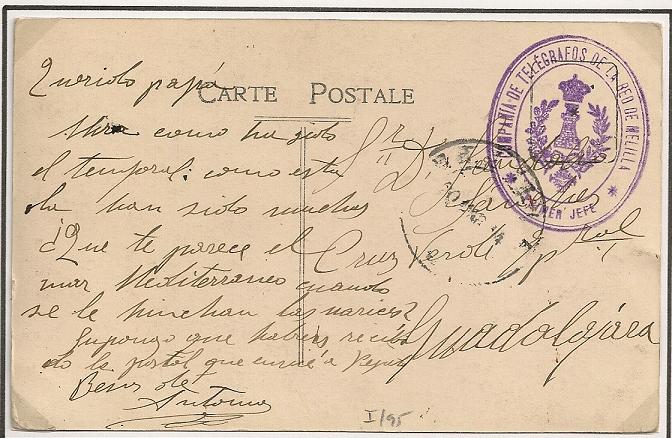 Querido papá
CARTE POSTALE
Mira como ha sido
el temporal: como esta
ola han sido muchas
¿Que te parece el
mar Mediterraneo cuando
se le hinchan las narices?
Supongo que habras recibi
do la postal que envié a
Besos de
Antonio
Sr. D.
Cruz Verde 2 pral
Guadalajara
COMPAÑIA DE TELÉGRAFOS DE LA RED DE MELILLA
PRIMER JEFE
I/95